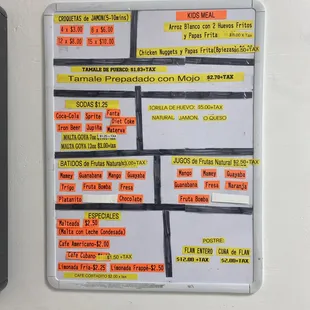 CROQUETAS de JAMON(5-10mins)
4 x $3.00 6 x $5.00
12 x $8.00 25 x $10.00
KIDS MEAL
Arroz Blanco con 2 Huevos Fritos
y Papas Frita
Chicken Nuggets y Papas Frita
TAMALE DE PUERCO: $1.83+TAX
Tamale Prepadado con Mojo $2.70+TAX
SODAS $1.25
Coca-Cola Sprite Fanta
Diet Coke
Iron Beer Jupiña Materva
MALTA GOYA
MALTA GOYA 12oz $3.00+TAX
TORILLA DE HUEVO: $5.00+TAX
NATURAL JAMON O QUESO
BATIDOS de Frutas Natural +TAX
Mamey Guanabana Mango Guayaba
Trigo Fresa Fruta Bomba
Platanito Chocolate
JUGOS de Frutas Natural +TAX
Mango Mamey Guayaba
Guanabana Fresa Naranja
Fruta Bomba
ESPECIALES
Malteada $2.50
(Malta con Leche Condesada)
Cafe Americano-$2.00
Cafe Cubano $1.50 +TAX
Limonada Fria-$2.25 Limonada Frappé-$2.50
CAFE CORTADITO $2.00 + tax
POSTRE:
FLAN ENTERO CUÑA de FLAN
$12.00 +TAX $2.00+TAX